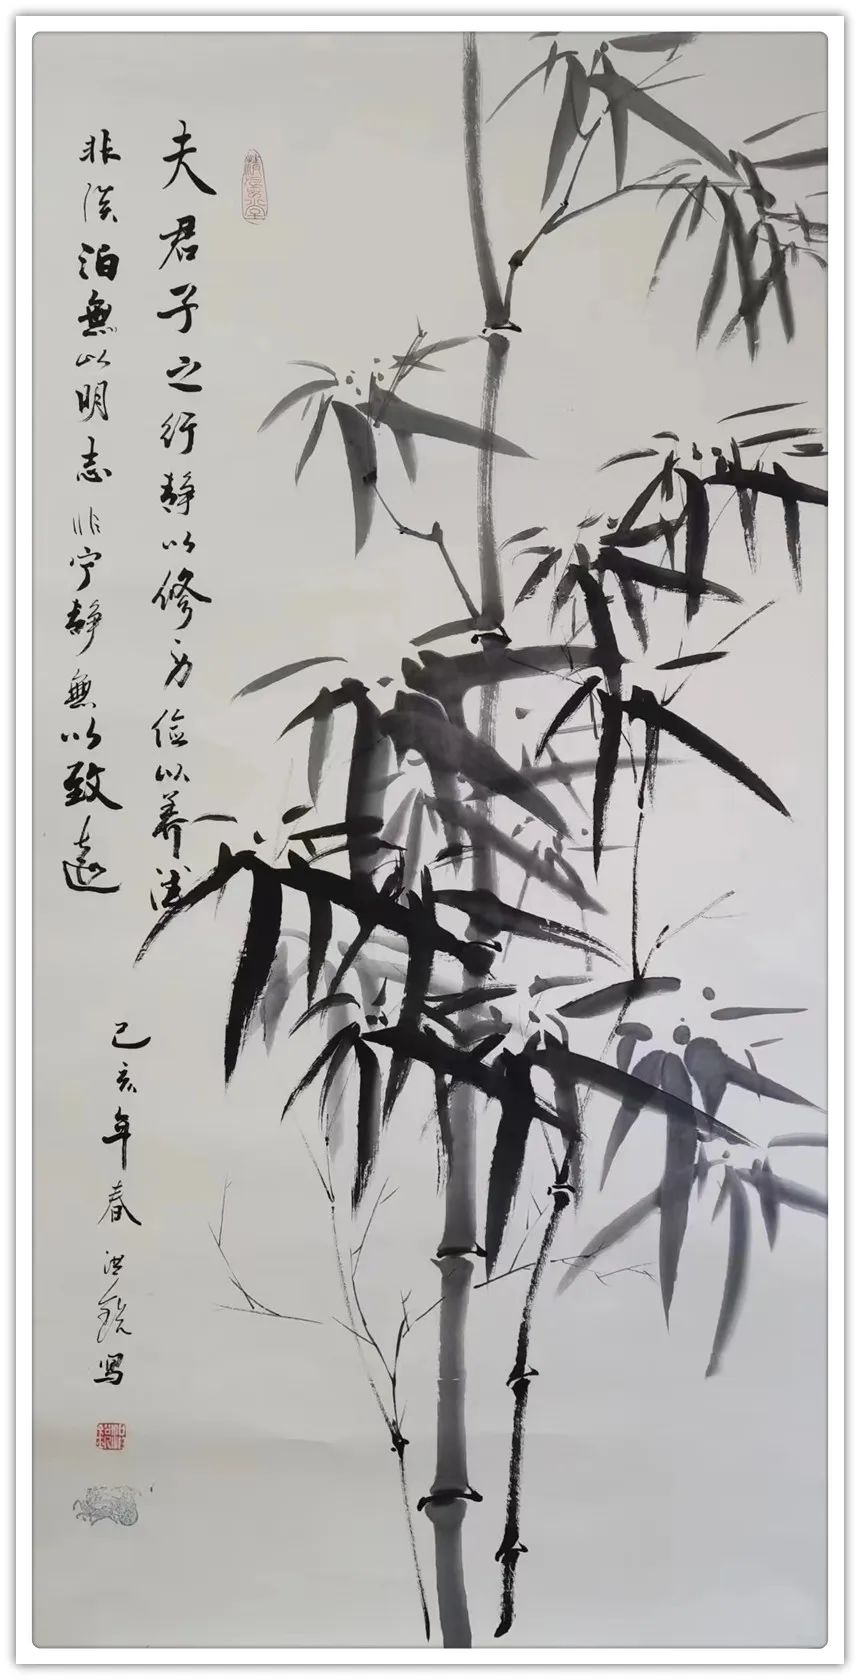 夫君子之行静以修身俭以养德
非淡泊無以明志非宁静無以致遠
己亥年春洪锐写